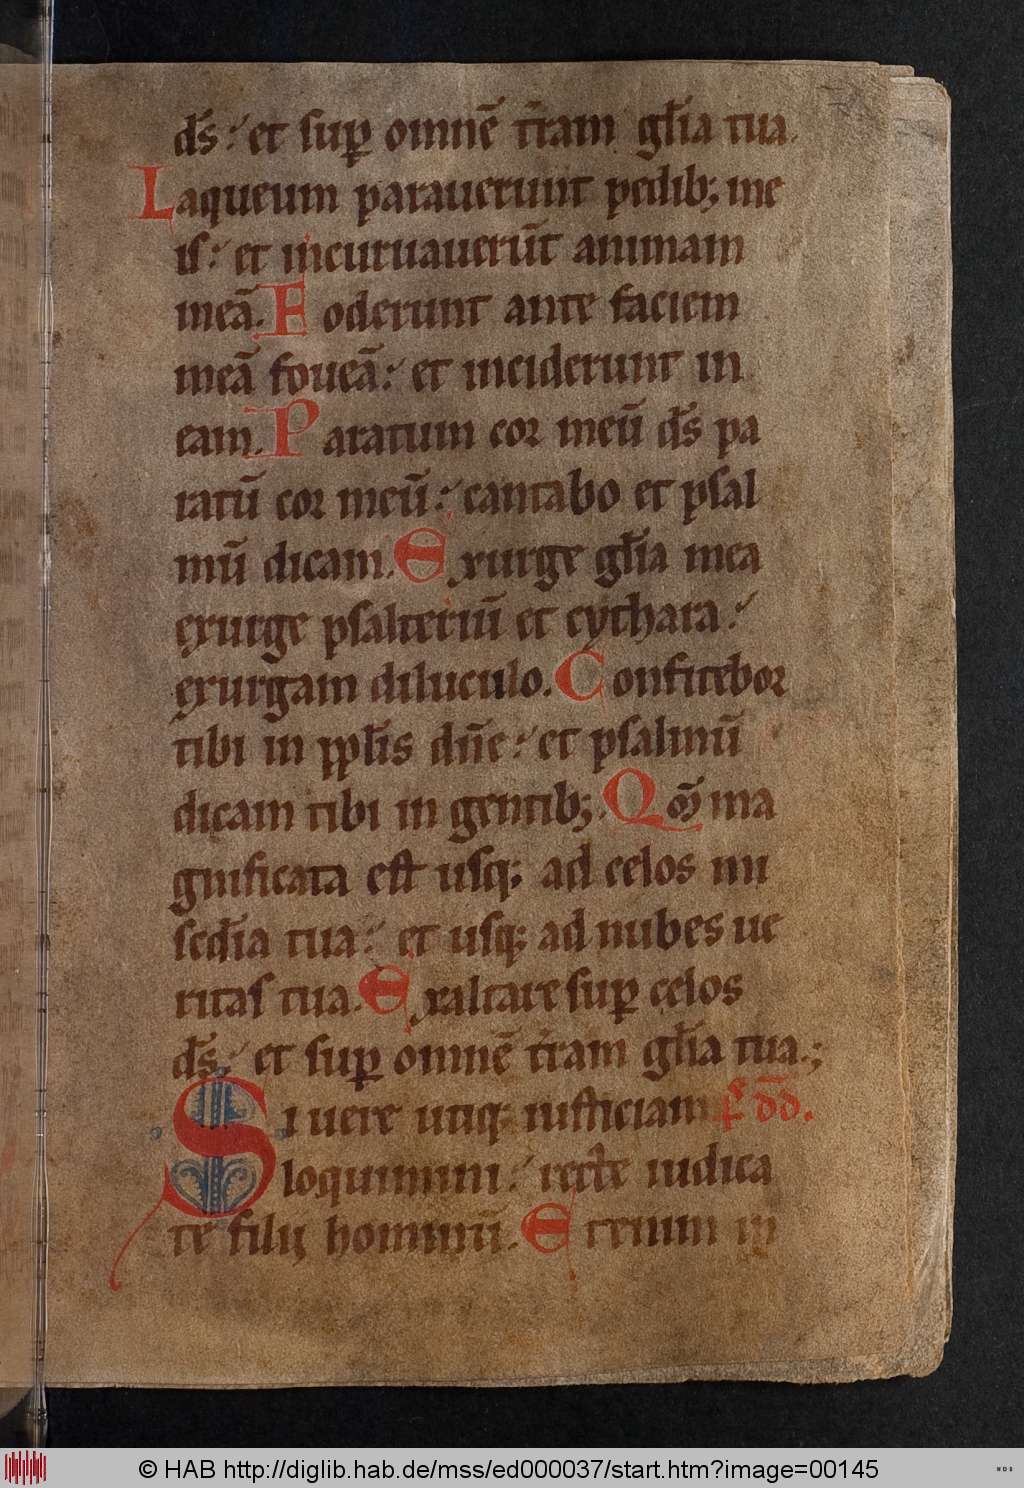 ds̄: et sup̱ omnē t̄ram gl̄ia tua.
Laqueum parauerunt pedib; me
is: et incuruauerūt animam
meā. Foderunt ante faciem
meā foueā: et inciderunt in
eam. Paratum cor meū ds̄ pa
ratū cor meū: cantabo et psal
mū dicam. Exurge gl̄ia mea
exurge psalteriū et cythara:
exurgam diluculo. Confitebor
tibi in ppl̄is dn̄e: et psalmū
dicam tibi in gentib;. Qm̄ ma
gnificata est usq; ad celos mi
sc̄dia tua: et usq; ad nubes ue
ritas tua. Exaltare sup̱ celos
ds̄: et sup̱ omnē t̄ram gl̄ia tua.;
Si uere utiq; iusticiam p̄s dd̄.
loquimini: recte iudica
te filij hominū. Etenim in
© HAB http://diglib.hab.de/mss/ed000037/start.htm?image=00145